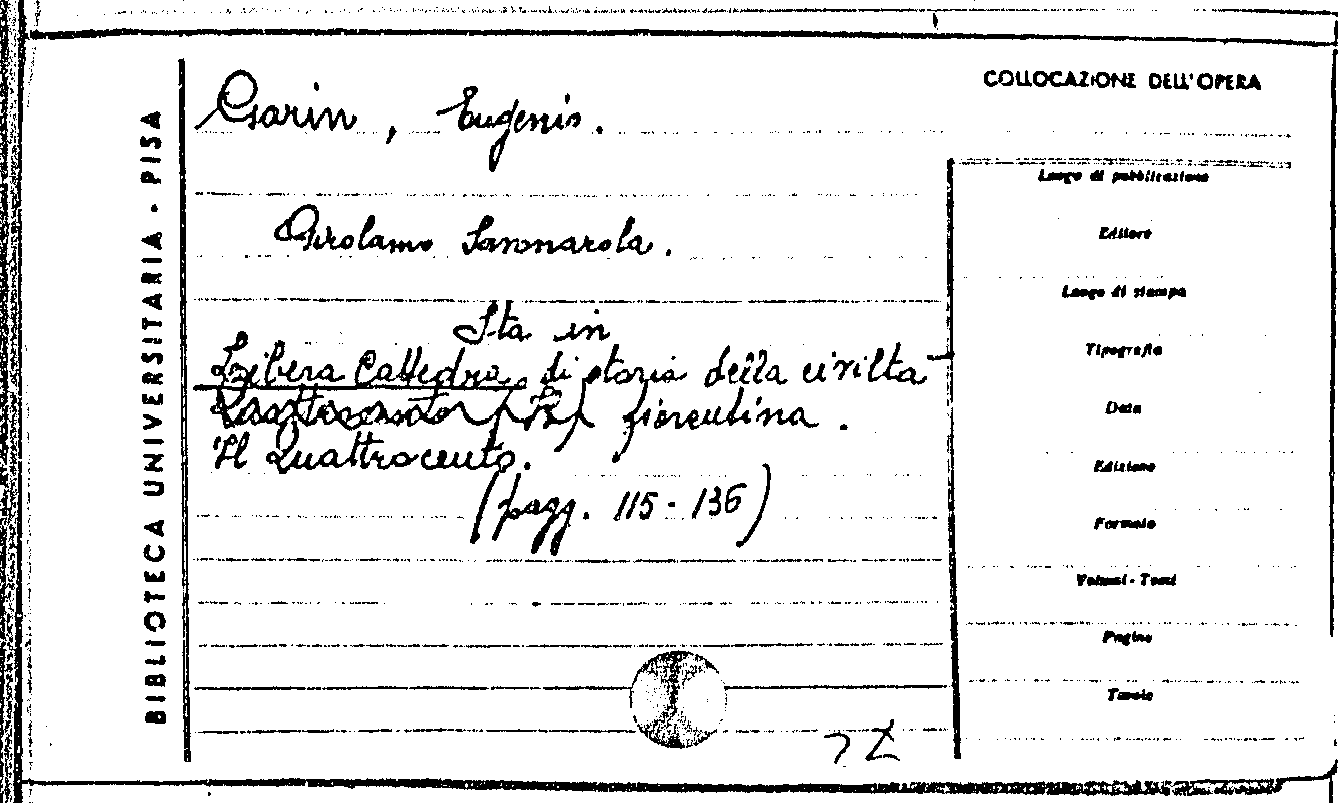 COLLOCAZIONE DELL'OPERA
BIBLIOTECA UNIVERSITARIA - PISA
Garin, Eugenio.
Girolamo Savonarola.
Sta in
Libera Cattedra di storia della civiltà
fiorentina.
Il Quattrocento.
(pagg. 115-136)
Luogo di pubblicazione
Editore
Luogo di stampa
Tipografia
Data
Edizione
Formato
Volumi - Tomi
Pagine
Tavole